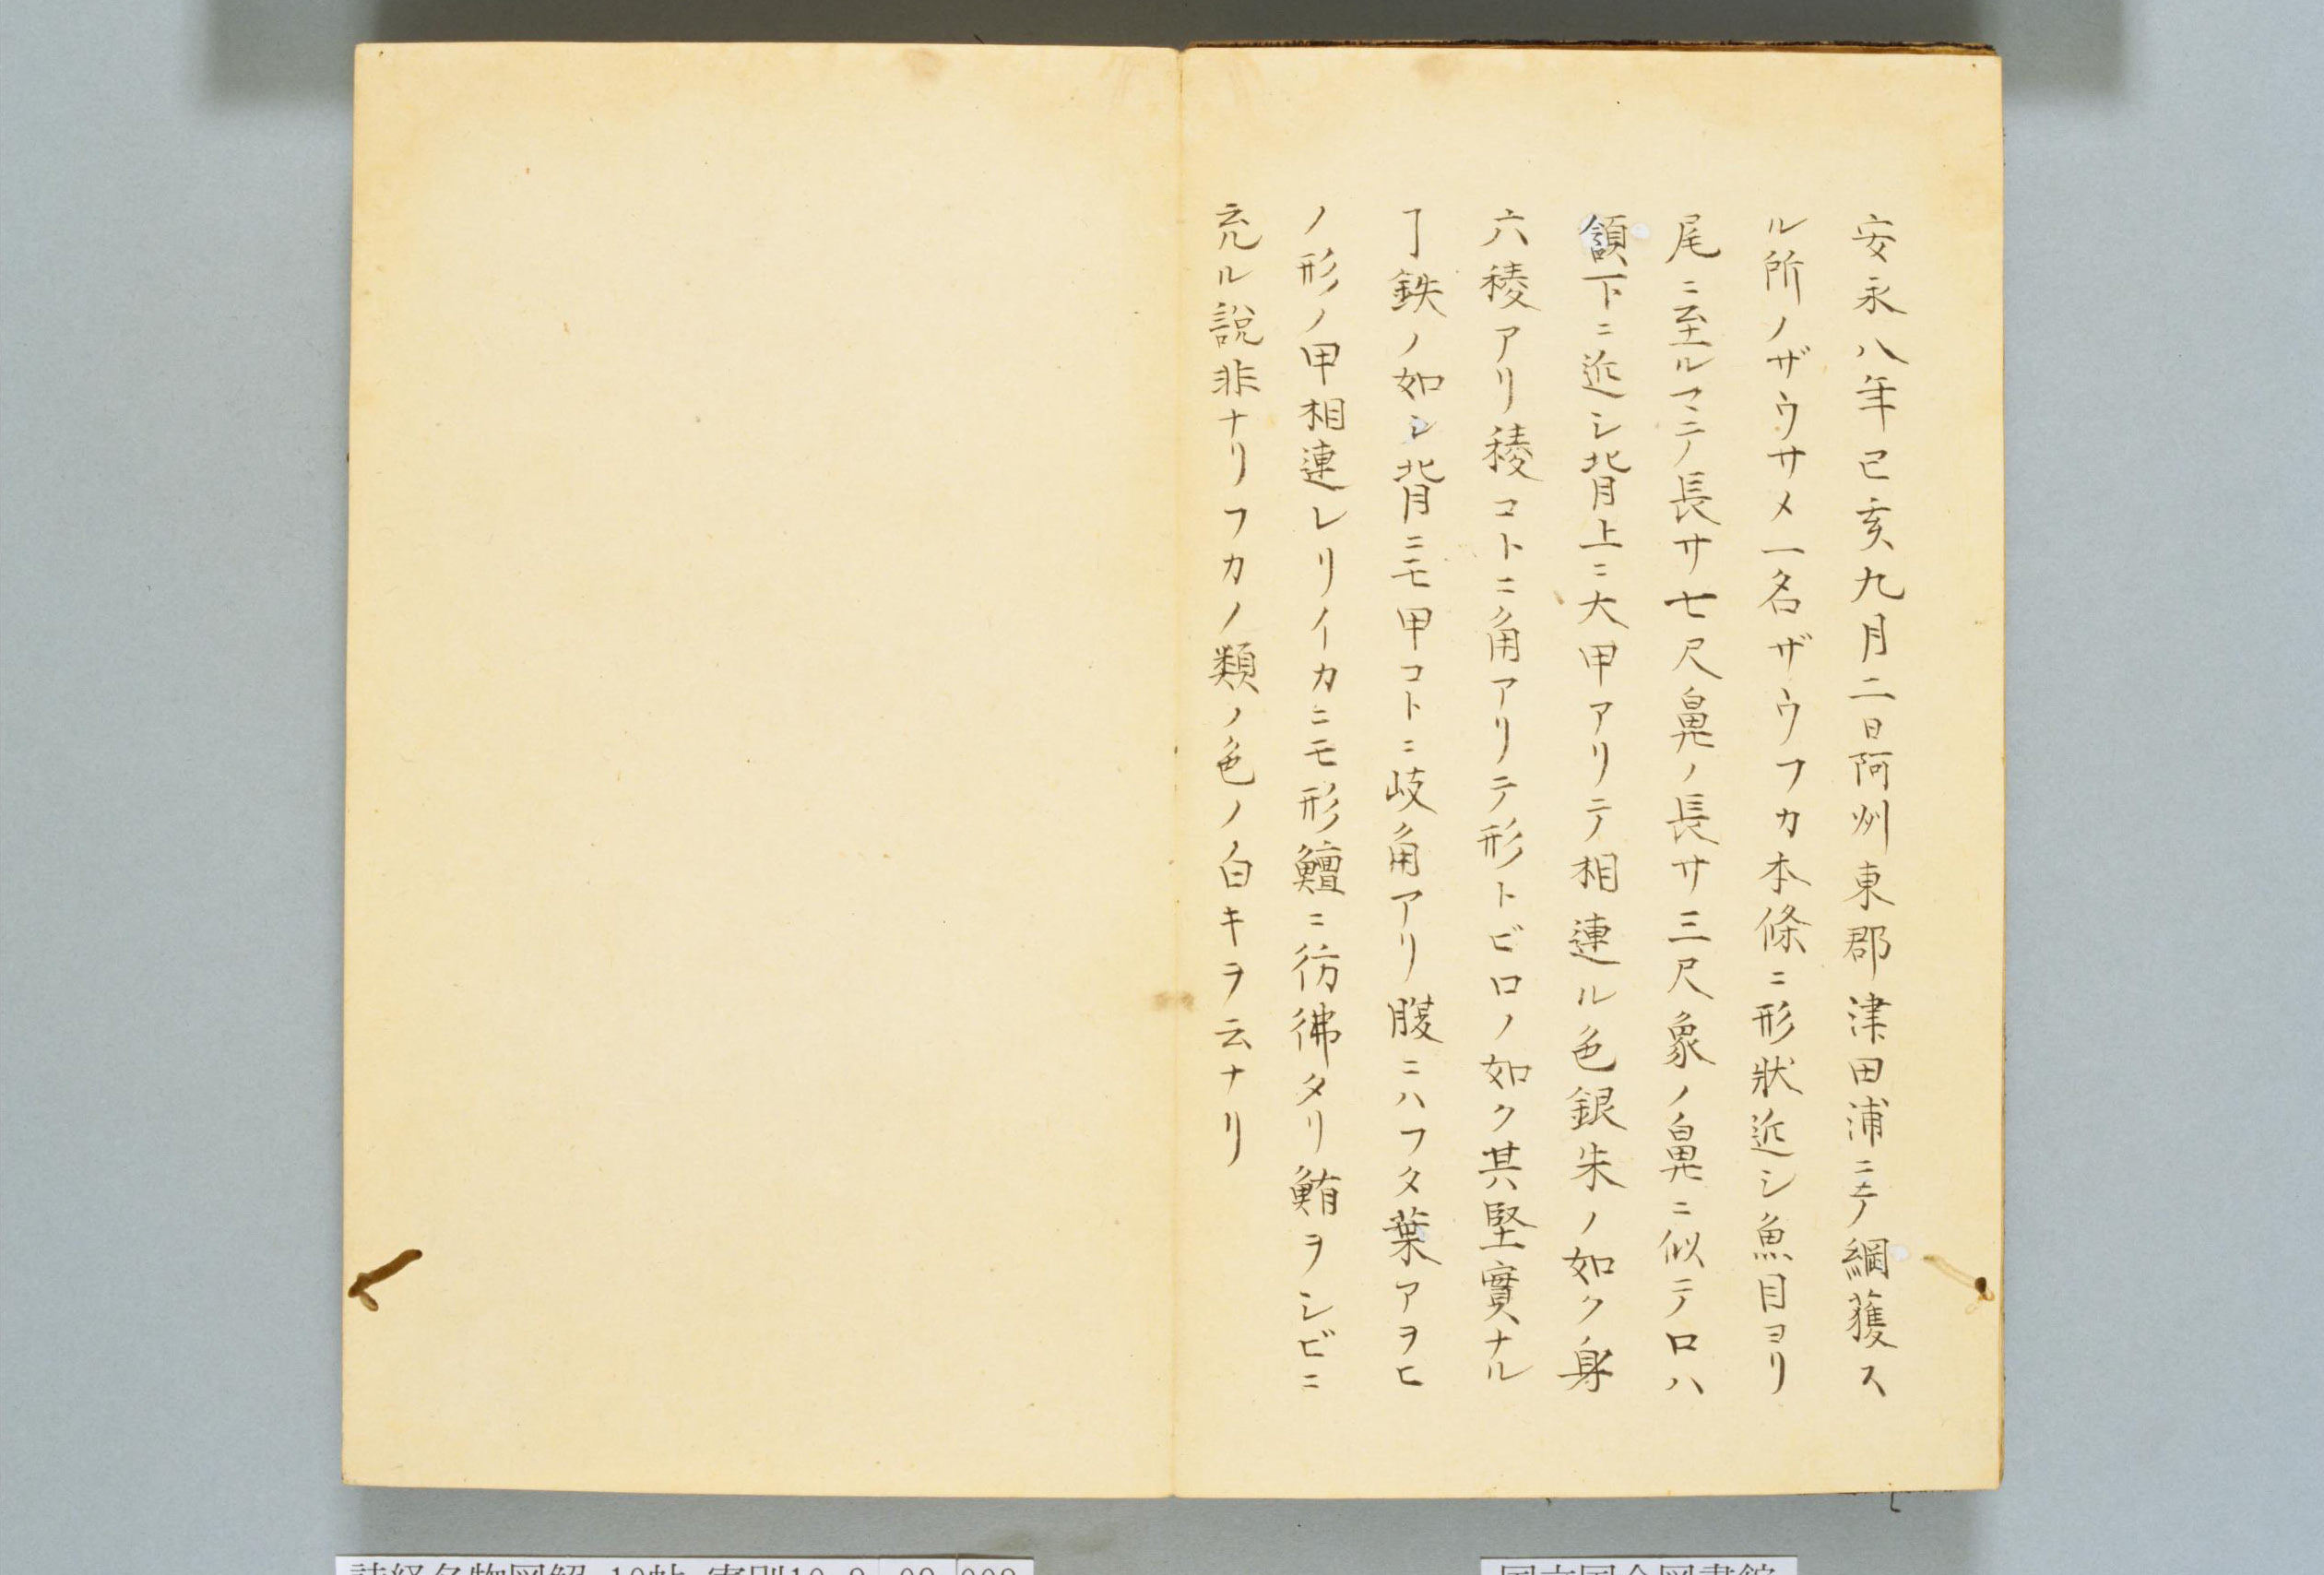 安永八年己亥九月二日阿州東郡津田浦ニテ綱獲ス
ル所ノザウサメ一名ザウフカ本條ニ形狀近シ魚目ヨリ
尾ニ至ルマテノ長サ七尺鼻ノ長サ三尺象ノ鼻ニ似テロハ
頷下ニ近シ背上ニ大甲アリテ相連ル色銀朱ノ如ク身
六稜アリ稜コトニ角アリテ形トビロノ如ク其堅實ナル
ヿ鉄ノ如シ背ニモ甲コトニ岐角アリ腹ニハフタ葉アヲヒ
ノ形ノ甲相連レリイカニモ形鱣ニ彷彿タリ鮪ヲシビニ
充ル說非ナリフカノ類ノ色ノ白キヲ云ナリ